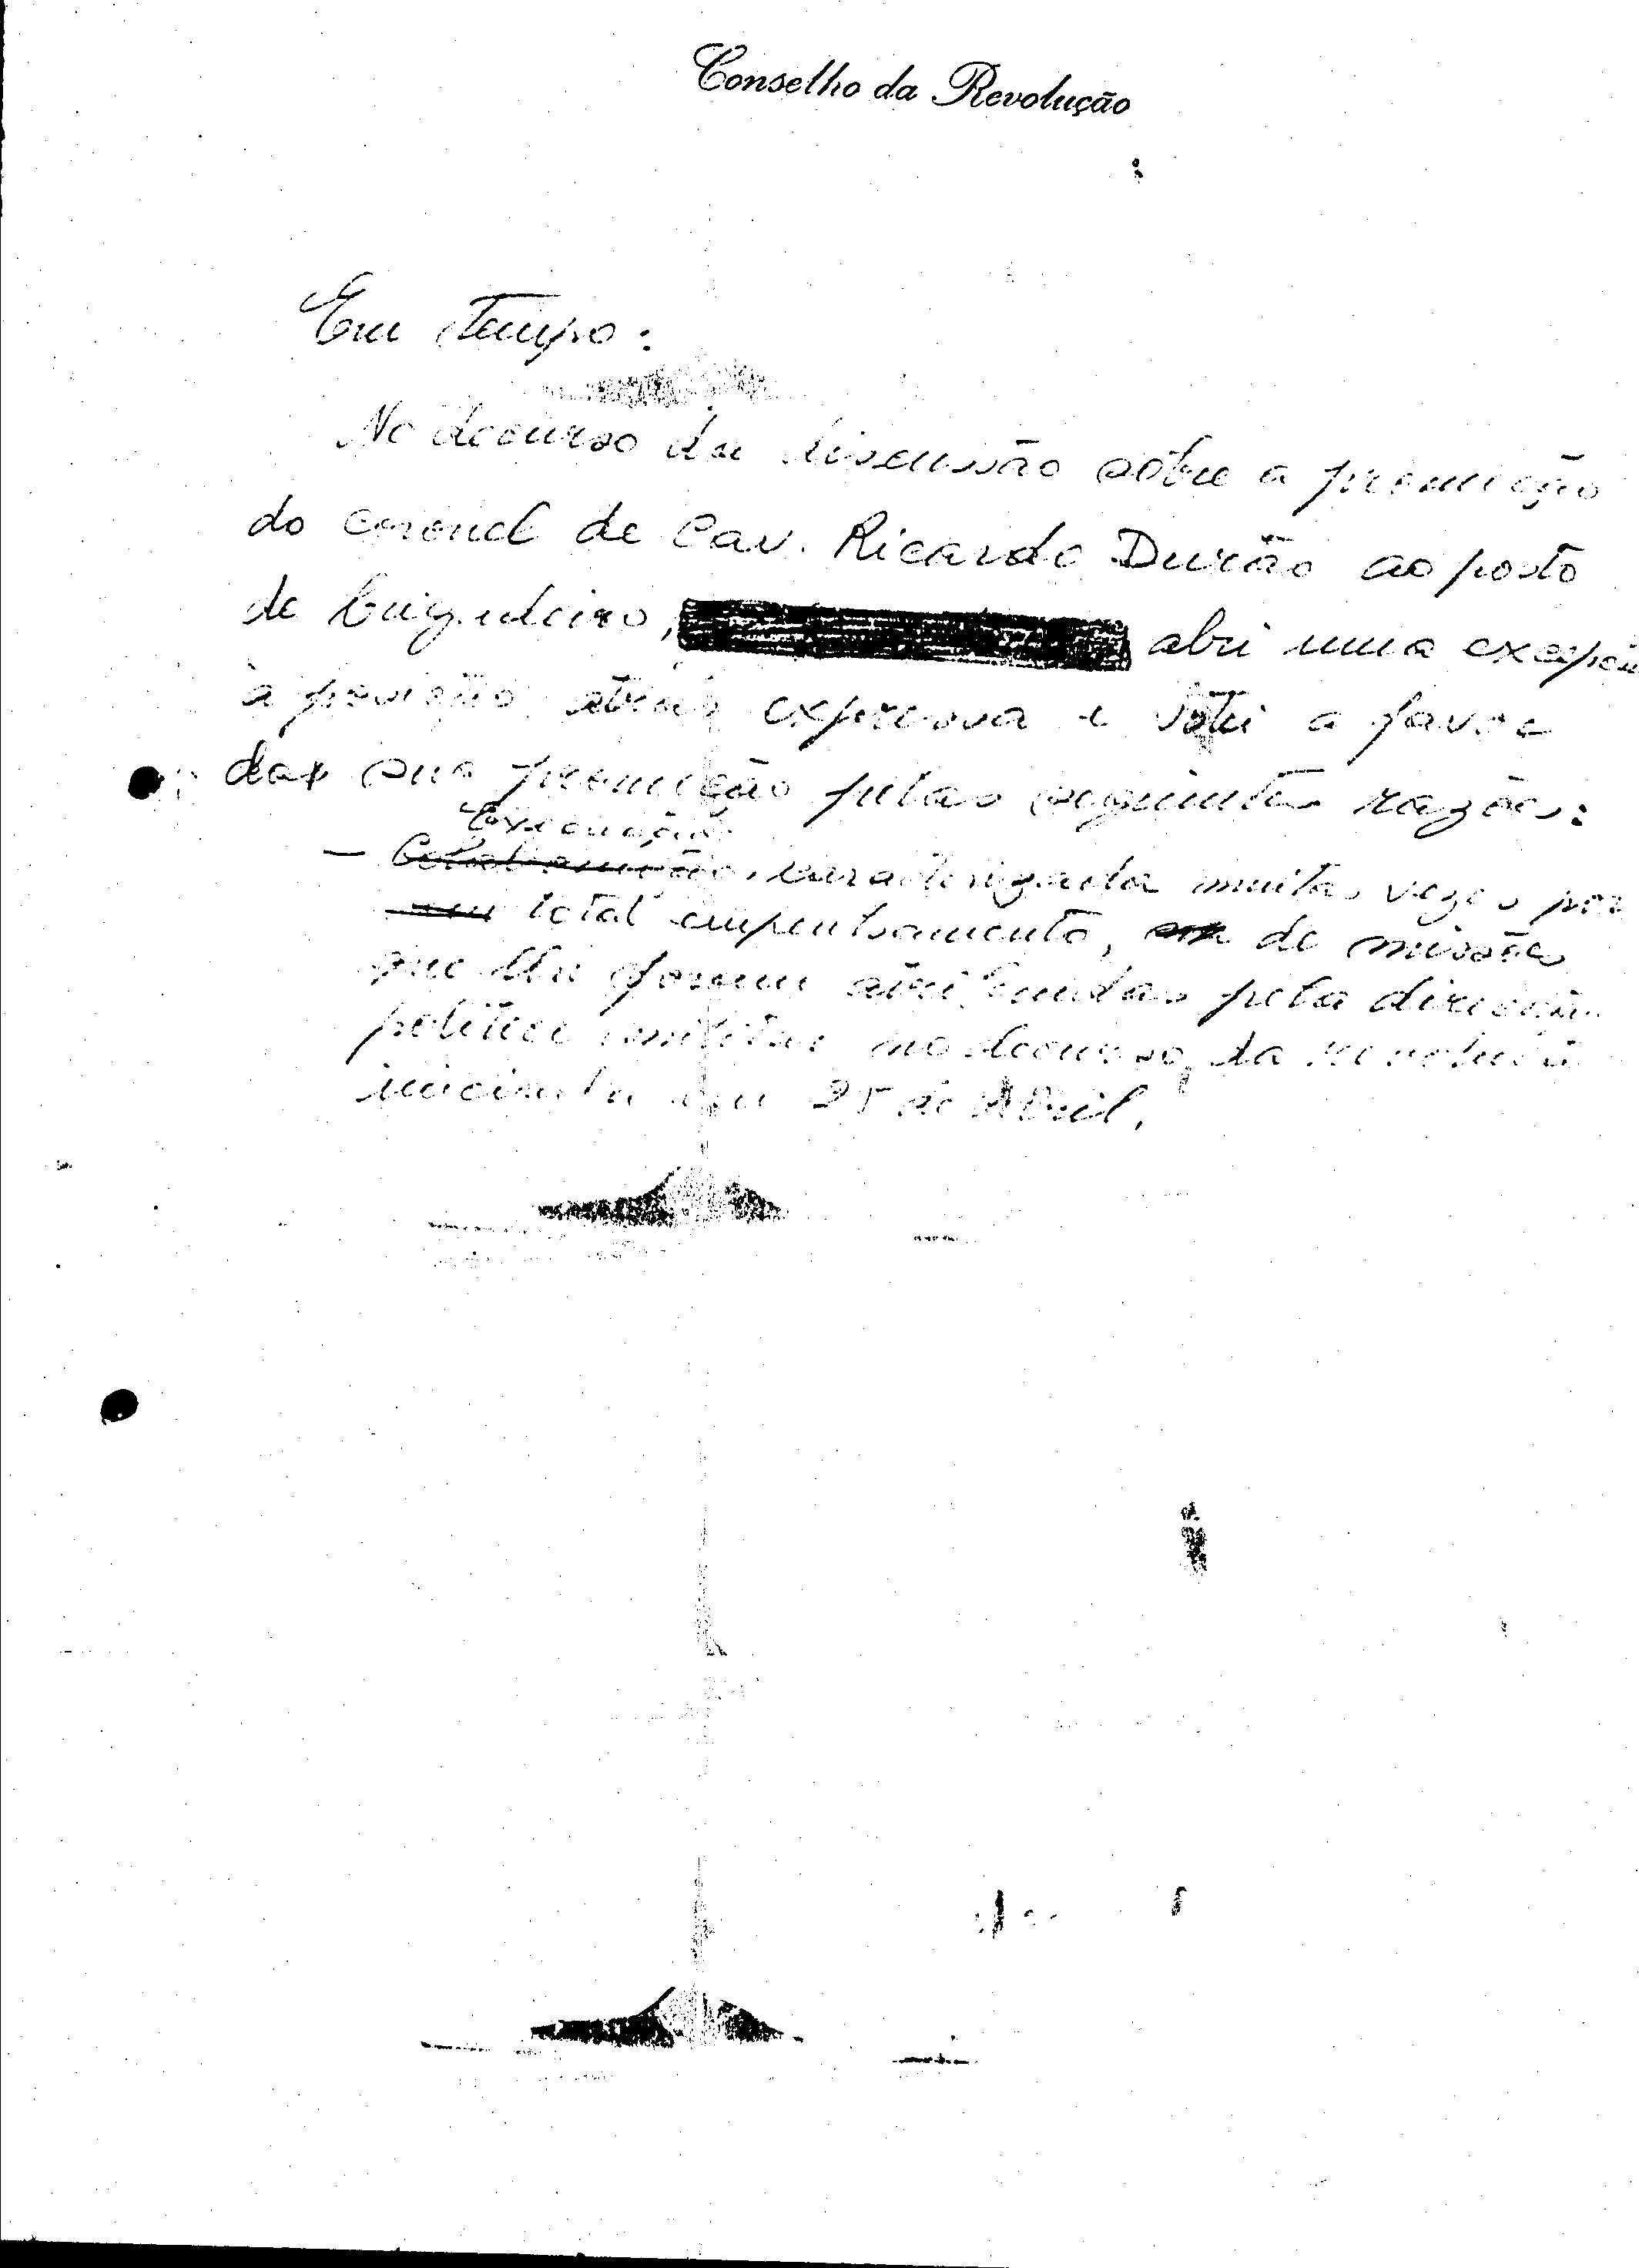 Conselho da Revolução
Em tempo:
No decurso da discussão sobre a promoção
do coronel de Cav. Ricardo Durão ao posto
de brigadeiro, abri uma excepção
à posição atrás expressa e votei a favor
da sua promoção pelas seguintes razões:
Execução
— Colaboração, caracterizada muitas vezes por
seu total empenhamento, em de missões
que lhe foram atribuidas pela direcção
politica militar no decurso da revolução
iniciada em 25 de Abril.